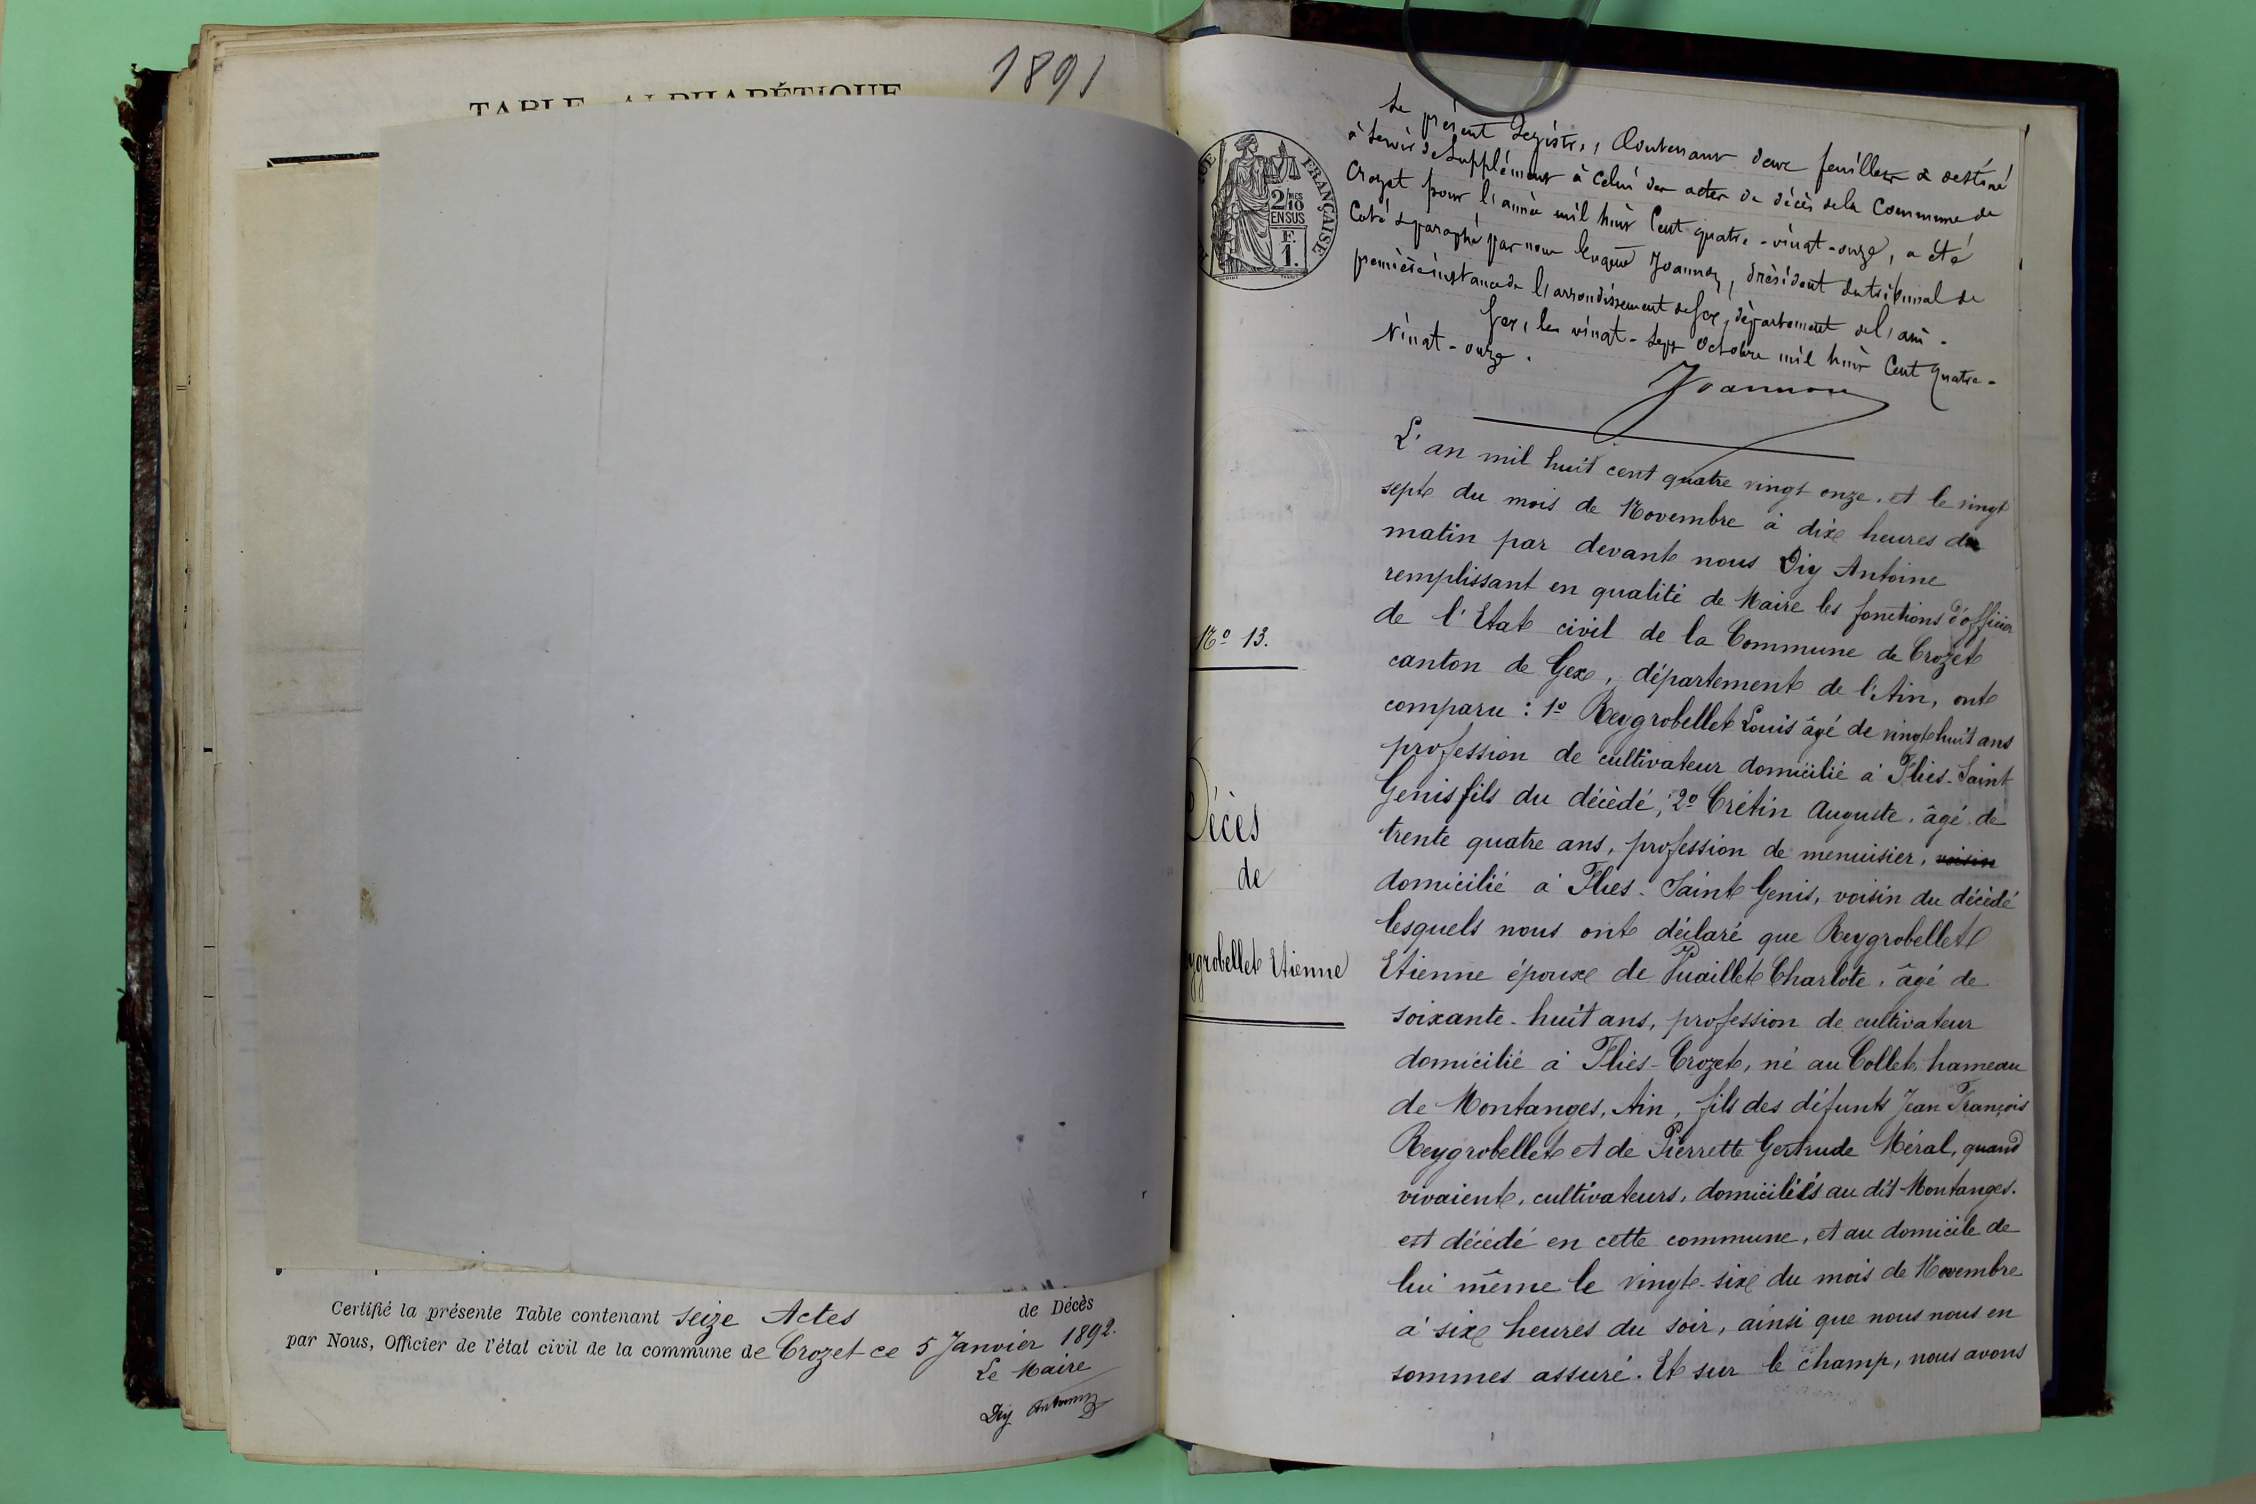 1891
TABLE ALPHABÉTIQUE
Certifié la présente Table contenant seize Actes de Décès
par Nous, Officier de l'état civil de la commune de Crozet ce 5 Janvier 1892.
Le Maire
Diy Antoine
FRANÇAISE
2/10 EN SUS
F.
1.
Le présent Registre, Contenant deux feuillets & destiné
à Servir de Supplément à Celui des actes de décès de la Commune de
Crozet pour l'année mil huit Cent quatre-vingt-onze, a été
Coté & paraphé par nous Eugène Joannon, Président du tribunal de
première instance de l'arrondissement de Gex, département de l'ain.
Gex, le vingt-sept Octobre mil huit Cent quatre-
vingt-onze.
Joannon
L'an mil huit cent quatre vingt onze, et le vingt
sept du mois de Novembre à dix heures du
matin par devant nous Diy Antoine
remplissant en qualité de Maire les fonctions d'officier
de l'Etat civil de la Commune de Crozet
canton de Gex, département de l'Ain, ont
comparu : 1º Reygrobellet Louis âgé de vingt huit ans
profession de cultivateur domicilié à Flies-Saint
Genis fils du décédé, 2º Crétin Auguste, âgé de
trente quatre ans, profession de menuisier, voisin
domicilié à Flies-Saint Genis, voisin du décédé
lesquels nous ont déclaré que Reygrobellet
Etienne époux de Vuaillet Charlote, âgé de
soixante-huit ans, profession de cultivateur
domicilié à Flies-Crozet, né au Collet, hameau
de Montanges, Ain, fils des défunts Jean François
Reygrobellet et de Pierrette Gertrude Méral, quand
vivaient, cultivateurs, domiciliés au dit Montanges.
est décédé en cette commune, et au domicile de
lui même le vingt-six du mois de Novembre
à six heures du soir, ainsi que nous nous en
sommes assuré. Et sur le champ, nous avons
Nº 13.
Décès
de
ygrobellet Etienne